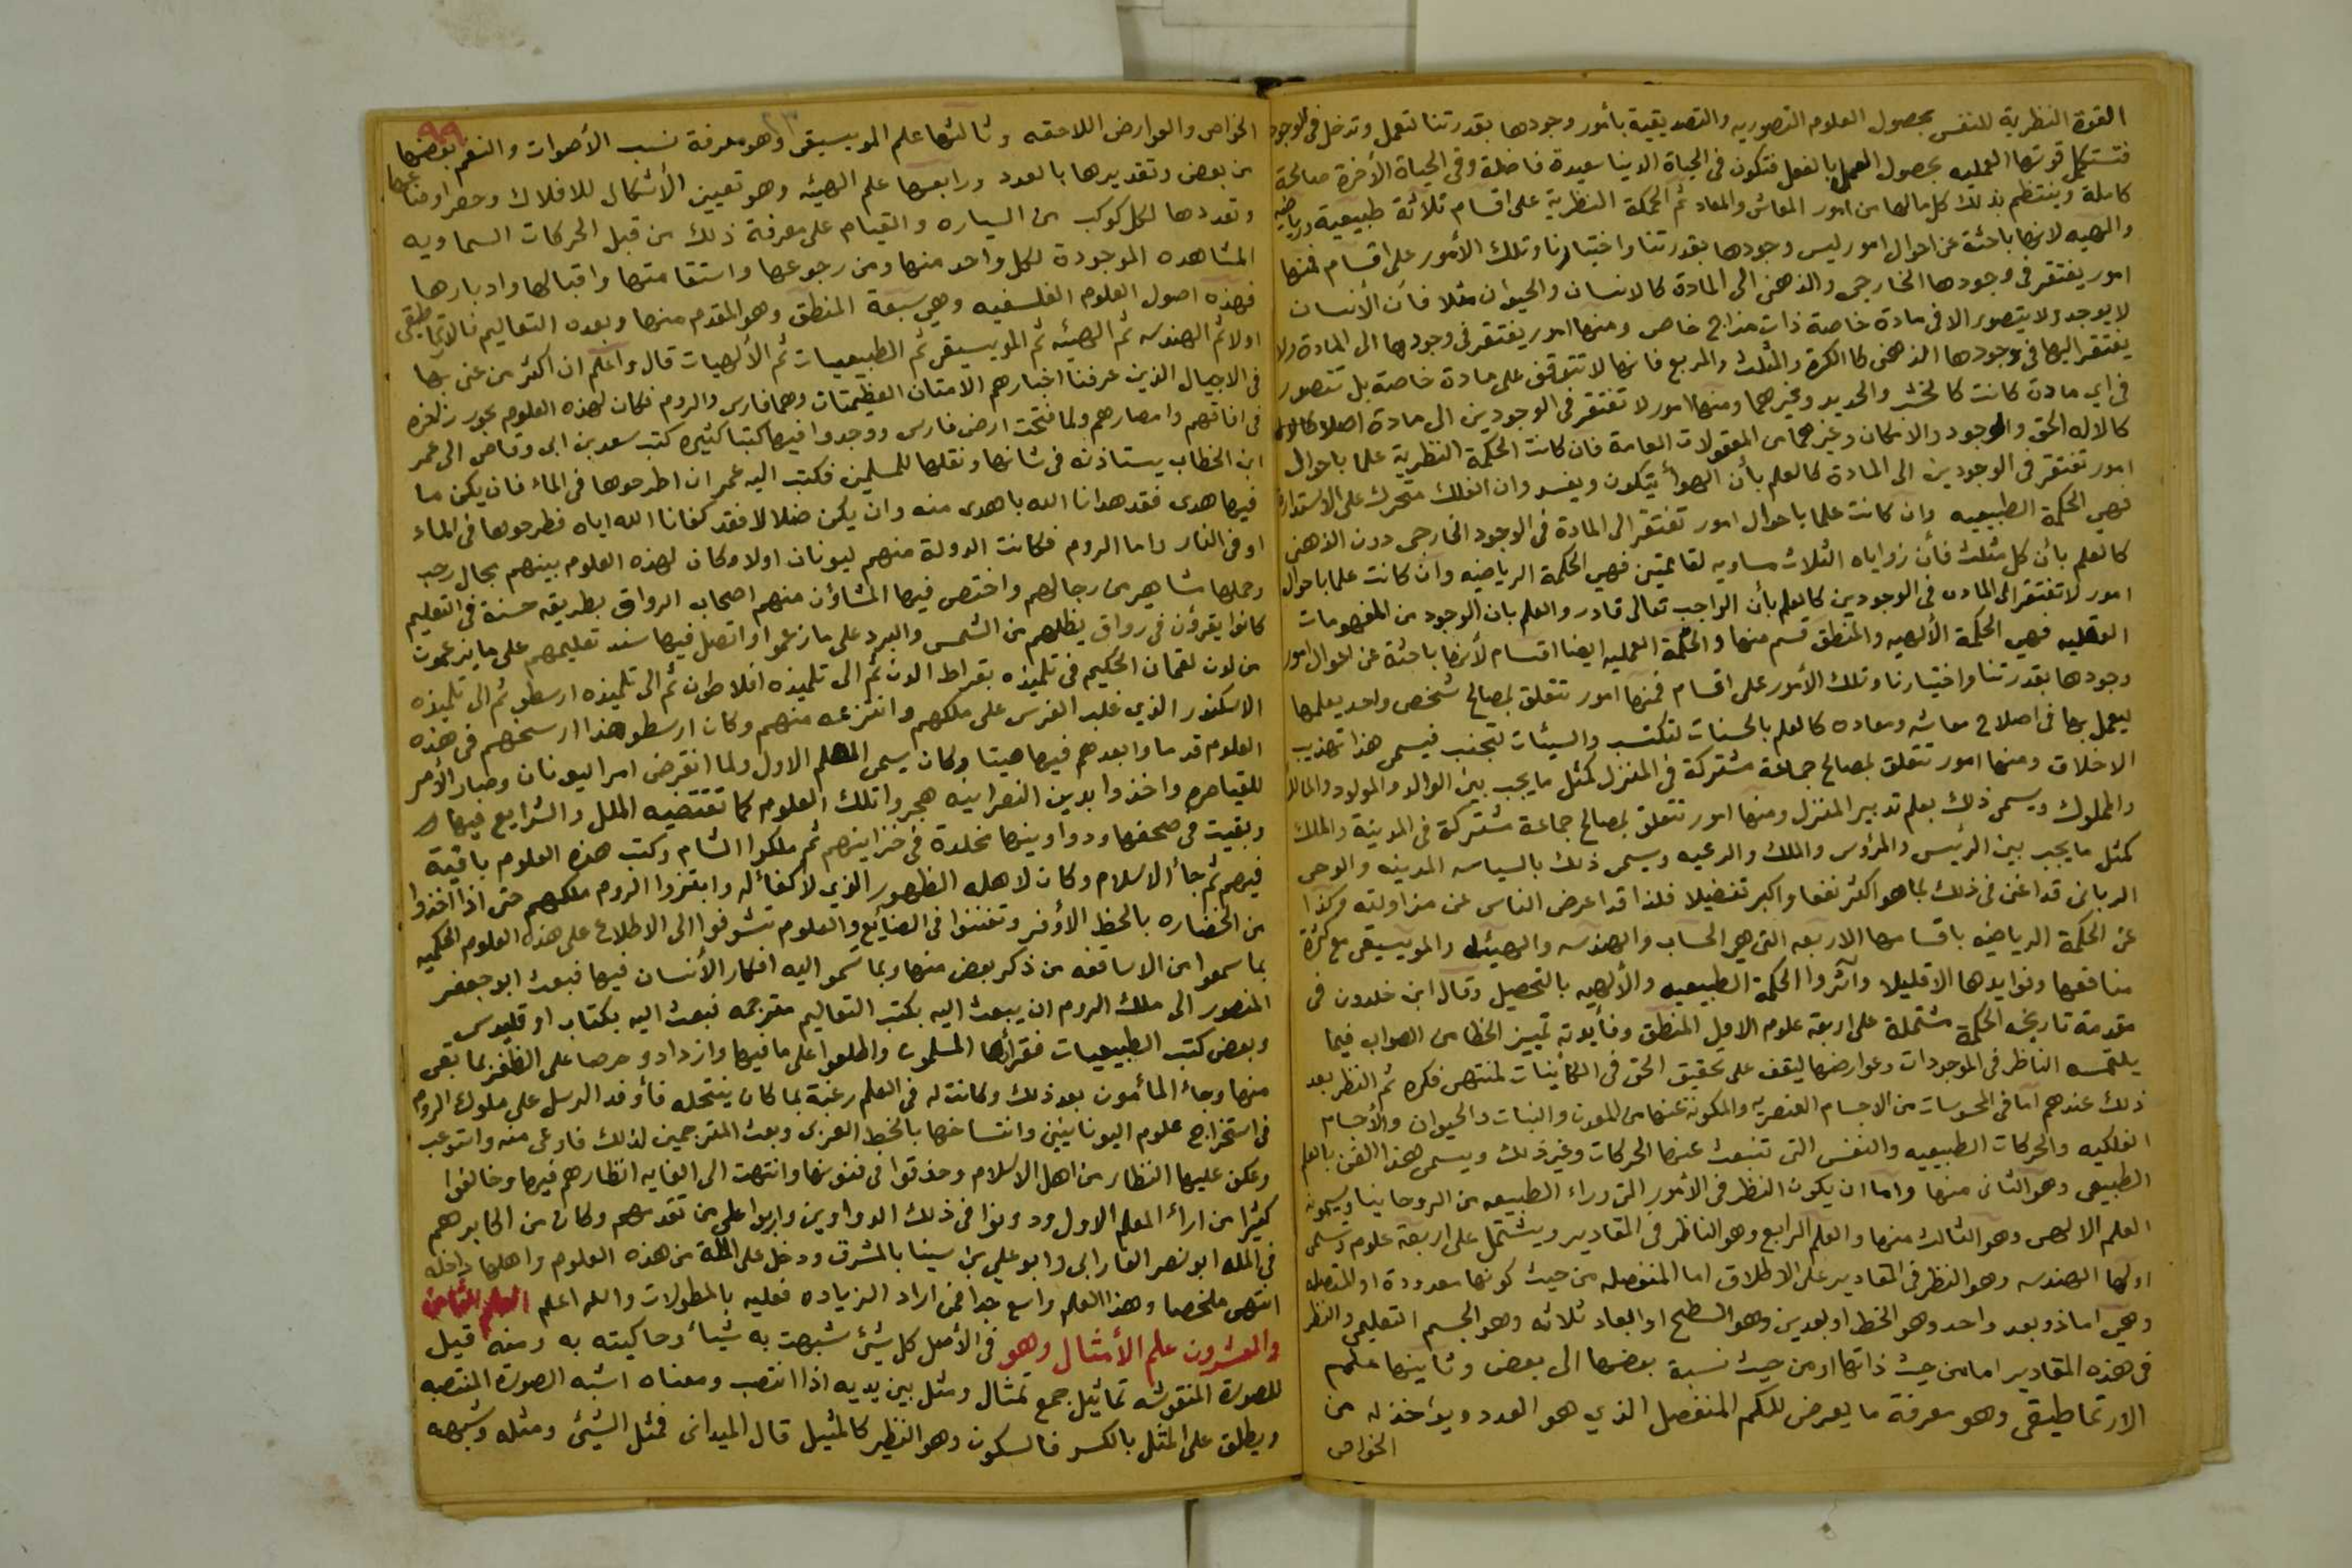 القوة النظرية للنفس بحصول العلوم التصوريه والتصديقية بأمور وجودها بقدرتنا لتعمل وتدخل فى الوجود
فتستكمل قوتها العمليه بحصول العمل بالفعل فتكون فى الحياة الدينا سعيدة فاضلة وفى الحياة الأخرة صالحة
كاملة وينتظم بذلك كل مالها من امور المعاش والمعاد ثم الحكمة النظرية على اقسام ثلاثة طبيعية ورياضيه
والهيه لانها باحثة عن احوال امور ليس وجودها بقدرتنا واختيارنا وتلك الأمور على اقسام فمنها
امور يفتقر فى وجودها الخارجى والذهنى الى المادة كالانسان والحيوان مثلا فأن الأنسان
لا يوجد ولا يتصور الا فى مادة خاصة ذات مزاج خاص ومنها امور يفتقر فى وجودها الى المادة ولا
يفتقر اليها فى وجودها الذهنى كا الكرة والمثلث والمربع فانها لا تتوقف على مادة خاصة بل تتصور
فى اى مادة كانت كالخشب والحديد وغيرهما ومنها امور لا تفتقر فى الوجودين الى مادة اصلا
كالاله الحق والوجود والامكان وغيرهما من المعقولات العامة فان كانت الحكمة النظرية علما باحوال
امور تفتقر فى الوجودين الى المادة كالعلم بأن الهوأ يتكون ويفسد وان الفلك متحرك على الاستدارة
فهى الحكمة الطبيعيه وان كانت علما باحوال امور تفتقر الى المادة فى الوجود الخارجى دون الذهنى
كالعلم بأن كل مثلث فأن زواياه الثلاث مساويه لقائمتين فهي الحكمة الرياضيه وان كانت علما باحوال
امور لا تفتقر الى الماده فى الوجودين كالعلم بأن الواجب تعالى قادر والعلم بان الوجود من المفهومات
العقليه فهى الحكمة الألهيه والمنطق قسم منها والحكمة العمليه ايضا اقسام لأنها باحثة عن احوال امور
وجودها بقدرتنا واختيارنا وتلك الأمور على اقسام فمنها امور تتعلق بمصالح شخص واحد يعلمها
ليعمل بها فى اصلاح معاشه ومعاده كالعلم بالحسنات لتكتسب والسيئات لتجتنب فيسمى هذا تهذيب
الاخلاق ومنها امور تتعلق بمصالح جماعة مشتركة فى المنزل كمثل ما يجب بين الوالد والمولود والمالك
والمملوك ويسمى ذلك بعلم تدبير المنزل ومنها امور تتعلق بمصالح جماعة مشتركة فى المدينة والملك
كمثل ما يجب بين الرئيس والمرؤس والملك والرعيه ويسمى ذلك بالسياسه المدينه والوحى
الربانى قد اغنى فى ذلك بما هو اكثر نفعا واكبر تفضيلا فلذا قد اعرض الناس عن مزاولته وكذا
عن الحكمة الرياضيه باقسامها الاربعه التى هي الحساب والهندسه والهيئه والموسيقى مع كثرة
منافعها وفوايدها الا قليلا وآثروا الحكمة الطبيعيه والألهيه بالتحصيل وقال ابن خلدون فى
مقدمة تاريخه الحكمة مشتملة على اربعة علوم الاول المنطق وفأيدته تمييز الخطا من الصواب فيما
يلتمسه الناظر فى الموجودات وعوارضها ليقف على تحقيق الحق فى الكاينات لمنتهى فكره ثم النظر بعد
ذلك عندهم اما فى المحسوسات من الاجسام العنصريه والمكونة عنها من المعدن والنبات والحيوان والأجسام
الفلكيه والحركات الطبيعيه والنفس التى تنبعث عنها الحركات وغير ذلك ويسمى هذا الفن بالعلم
الطبيعى وهو الثانى منها واما ان يكون النظر فى الأمور التى وراء الطبيعه من الروحانيات ويسمونه
العلم الالهى وهو الثالث منها والعلم الرابع وهو الناظر فى المقادير ويشتمل على اربعة علوم وتسمى
اولها الهندسه وهو النظر فى المقادير على الاطلاق اما المنفصله من حيث كونها معدودة او المتصله
وهي اما ذو بعد واحد وهو الخط او بعدين وهو السطح او ابعاد ثلاثه وهو الجسم التعليمى والنظر
فى هذه المقادير اما من حيث ذاتها او من حيث نسبة بعضها الى بعض وثانيها علم
الارتماطيقى وهو معرفة ما يعرض للكم المنفصل الذي هو العدد ويؤخذ له من
الخواص
٩٩
الخواص والعوارض اللاحقه وثالثها علم الموسيقى وهو معرفة نسب الأصوات والنغم بعضها
من بعض وتقديرها بالعدد ورابعها علم الهيئه وهو تعيين الأشكال للافلاك وحصر اوضاعها
وتعددها لكل كوكب من السياره والقيام على معرفة ذلك من قبل الحركات السماويه
المشاهده الموجودة لكل واحد منها ومن رجوعها واستقامتها واقبالها وادبارها
فهذه اصول العلوم الفلسفيه وهي سبعة المنطق وهو المقدم منها وبعده التعاليم فالارتماطيقى
اولا ثم الهندسه ثم الهيئه ثم الموسيقى ثم الطبيعيات ثم الألهيات قال واعلم ان اكثر من عنى بها
فى الاجيال الذين عرفنا اخبارهم الامتان العظيمتان وهما فارس والروم فكان لهذه العلوم بحور زاخره
فى افاقهم وامصارهم ولما فتحت ارض فارس ووجدوا فيها كتبا كثيره كتب سعد بن ابى وقاص الى عمر
ابن الخطاب يستاذنه فى شانها ونقلها للمسلمين فكتب اليه عمر ان اطرحوها فى الماء فان يكن ما
فيها هدى فقد هدانا الله باهدى منه وان يكن ضلالا فقد كفانا الله اياه فطرحوها فى الماء
او فى النار واما الروم فكانت الدولة منهم ليونان اولا وكان لهذه العلوم بينهم مجال رحب
وحملها مشاهير من رجالهم واختص فيها المشاؤن منهم اصحاب الرواق بطريقه حسنة فى التعليم
كانوا يقرؤن فى رواق يظلهم من الشمس والبرد على ما زعموا واتصل فيها سند تعليمهم على ما يزعمون
من لدن لقمان الحكيم فى تلميذه بقراط الدن ثم الى تلميذه افلاطون ثم الى تلميذه ارسطو ثم الى تلميذه
الاسكندر الذي غلب الفرس على ملكهم وانتزعه منهم وكان ارسطو هذا ارسخهم فى هذه
العلوم قدما وابعدهم فيها صيتا وكان يسمى المعلم الاول ولما انقرض امر اليونان وصار الأمر
للقياصره واخذوا بدين النصرانيه هجروا تلك العلوم كما تقتضيه الملل والشرايع فيها
وبقيت فى صحفها ودواوينها مخلدة فى خزاينهم ثم ملكوا الشام وكتب هذه العلوم باقية
فيهم ثم جأ الاسلام وكان لاهله الظهور الذي لا كفأ له وابتزوا الروم ملكهم حتى اذا اخذوا
من الحضاره بالحظ الأوفر وتفننوا فى الصنايع والعلوم تشوفوا الى الاطلاع على هذه العلوم الحكميه
بما سمعوا من الاساقفه من ذكر بعض منها وبما تسموا اليه افكار الأنسان فيها فبعث ابو جعفر
المنصور الى ملك الروم ان يبعث اليه بكتب التعاليم مترجمه فبعث اليه بكتاب اوقليدس
وبعض كتب الطبيعيات فقرأها المسلمون واطلعوا على ما فيها وازدادو حرصا على الظفر بما بقى
منها وجأ المأمون بعد ذلك وكانت له فى العلم رغبة بما كان ينتحله فأوفد الرسل على ملوك الروم
فى استخراج علوم اليونانيين وانتساخها بالخط العربى وبعث المترجمين لذلك فاوعى منه واستوعب
وعكف عليها النظار من اهل الاسلام وحذقوا فى فنونها وانتهت الى الغايه انظارهم فيها وخالفوا
كثيرا من اراء المعلم الاول ودونوا فى ذلك الدواوين واربوا على من تقدمهم وكان من اكابرهم
فى المله ابو نصر الفارابى وابو علي بن سينا بالمشرق ودخل على الملة من هذه العلوم واهلها داخله
انتهى ملخصا وهذا العلم واسع جدا فمن اراد الزياده فعليه بالمطولات والله اعلم العلم الثامن
والعشرون علم الأمثال وهو فى الأصل كل شئ شبهت به شيأ وحاكيته به ومنه قيل
للصورة المنقوشه تماثيل جمع تمثال ومثل بين يديه اذا انتصب ومعناه اشبه الصورة المنتصبه
ويطلق على المثل بالكسر فالسكون وهو النظير كالمثيل قال الميدانى فمثل الشئ ومثله وشبهه